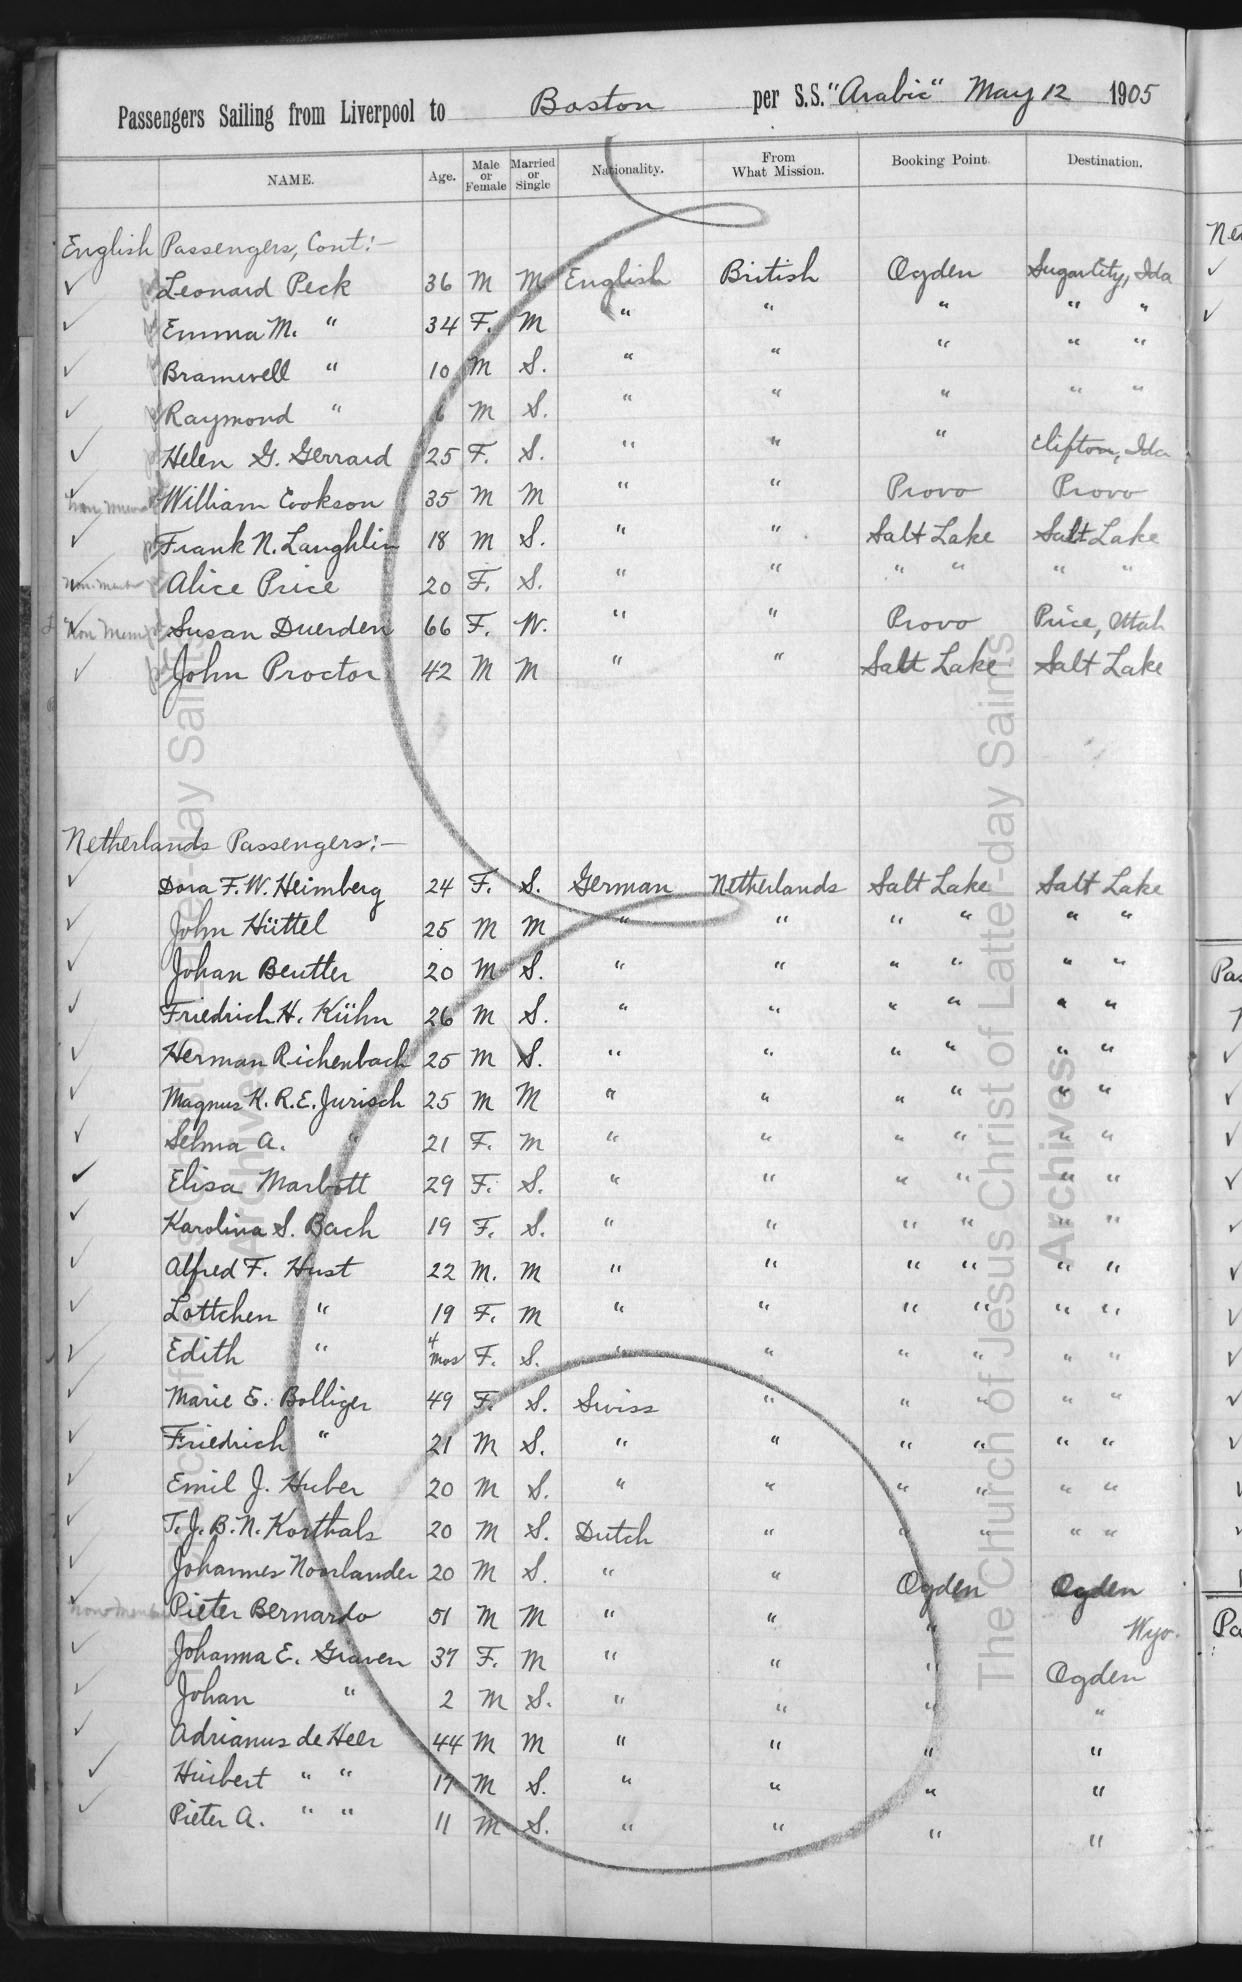 Passengers Sailing from Liverpool to Boston per S.S. "Arabic" May 12 1905
NAME. Age. Male or Female Married or Single Nationality. From What Mission. Booking Point. Destination.
English Passengers, Cont:-
✓ Leonard Peck 36 M M English British Ogden Sugar City, Ida
✓ Emma M. " 34 F. M " " " " "
✓ Bramwell " 10 M S. " " " " "
✓ Raymond " 6 M S. " " " " "
✓ Helen G. Gerrard 25 F. S. " " " Clifton, Ida
✓ Non Mem William Cookson 35 M M " " Provo Provo
✓ Frank N. Laughlin 18 M S. " " Salt Lake Salt Lake
✓ Non. Memb Alice Price 20 F. S. " " " " " "
✓ Non Mem Susan Duerden 66 F. W. " " Provo Price, Utah
✓ John Proctor 42 M M " " Salt Lake Salt Lake
Netherlands Passengers:-
✓ Dora F. W. Heimberg 24 F. S. German Netherlands Salt Lake Salt Lake
✓ John Hüttel 25 M M " " " " " "
✓ Johan Beutler 20 M S. " " " " " "
✓ Friedrich H. Kühn 26 M S. " " " " " "
✓ Herman Richenbach 25 M S. " " " " " "
✓ Magnus K. R. E. Jurisch 25 M M " " " " " "
✓ Selma A. " 21 F. M " " " " " "
✓ Elisa Marbott 29 F. S. " " " " " "
✓ Karolina S. Bach 19 F. S. " " " " " "
✓ Alfred F. Hust 22 M. M " " " " " "
✓ Lottchen " 19 F. M " " " " " "
✓ Edith " 4 mos F. S. " " " " " "
✓ Marie E. Bolliger 49 F. S. Swiss " " " " "
✓ Friedrich " 21 M S. " " " " " "
✓ Emil J. Huber 20 M S. " " " " " "
✓ T. J. B. N. Korthals 20 M S. Dutch " " " " "
✓ Johannes Noorlander 20 M S. " " Ogden Ogden
✓ Pieter Bernardo 51 M M " " " Wyo.
✓ Johanna E. Graven 37 F. M " " " Ogden
✓ Johan " 2 M S. " " " "
✓ Adrianus de Heer 44 M M " " " "
✓ Huibert " " 17 M S. " " " "
✓ Pieter A. " " 11 M S. " " " "
The Church of Jesus Christ of Latter-day Saints
Archives